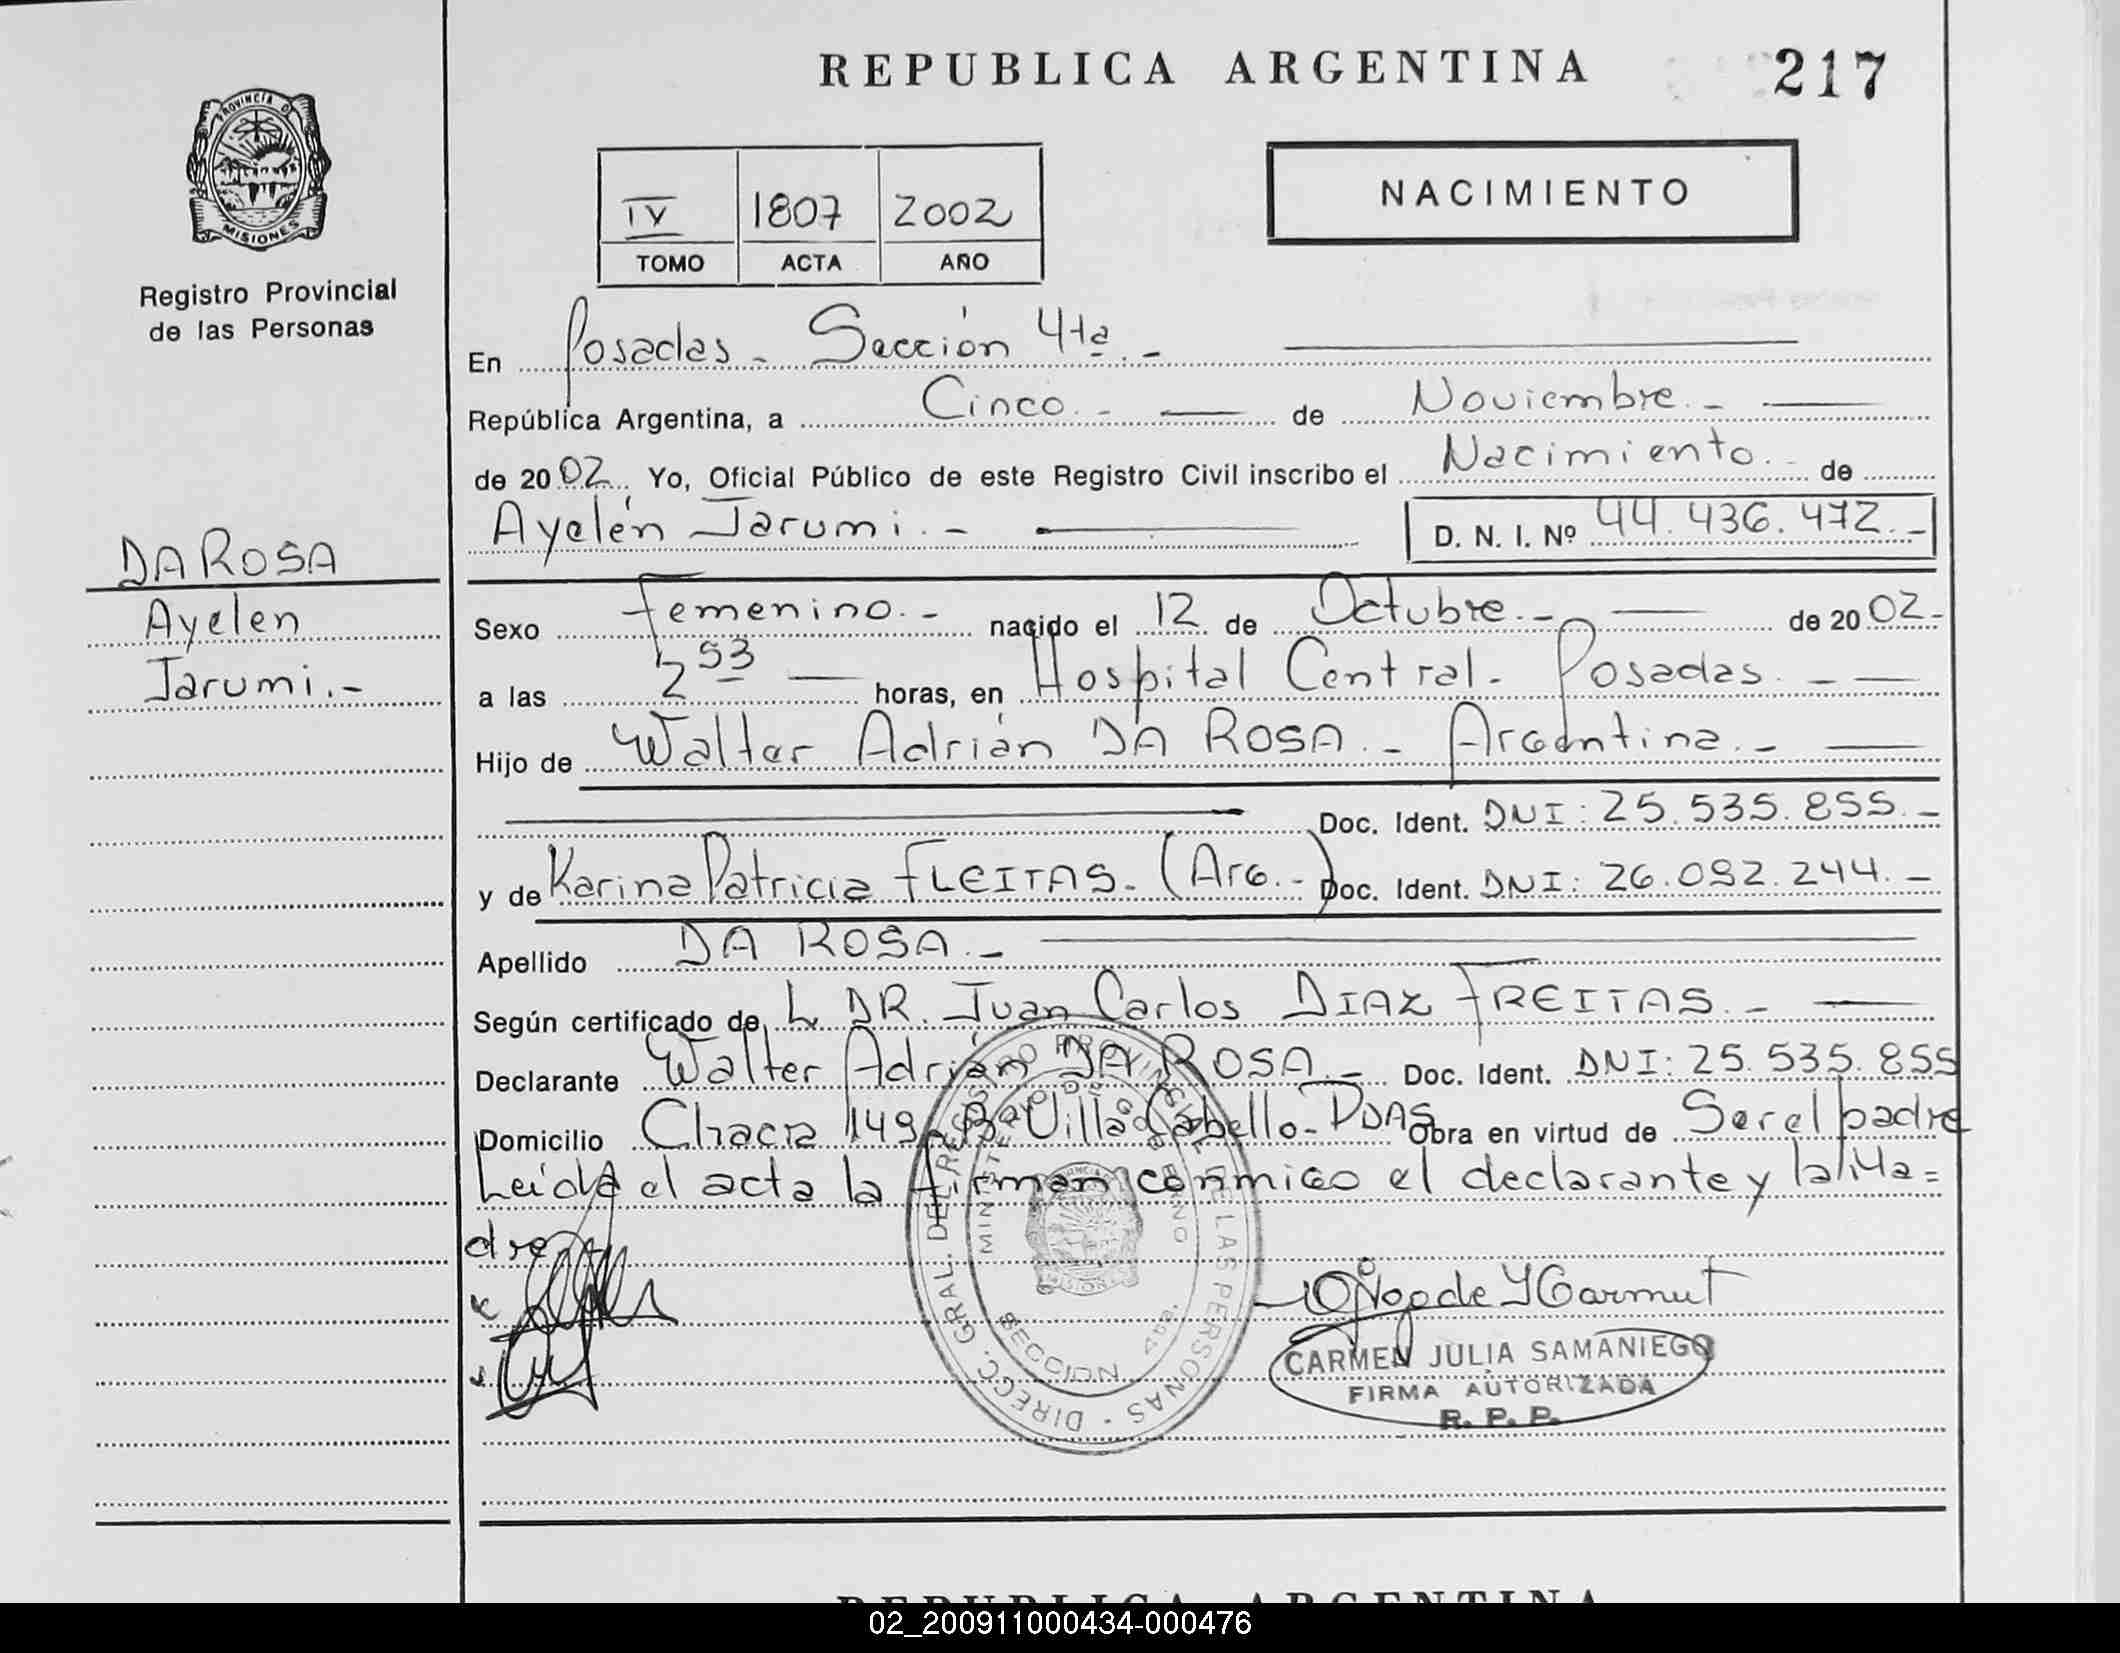 REPUBLICA ARGENTINA 217
PROVINCIA DE MISIONES
Registro Provincial
de las Personas
IV 1807 2002
TOMO ACTA AÑO
NACIMIENTO
En Posadas - Sección 4ta. -
República Argentina, a Cinco. - de Noviembre. -
de 2002 Yo, Oficial Público de este Registro Civil inscribo el Nacimiento. - de
Ayelén Jarumi. - D. N. I. Nº 44.436.472. -
DA ROSA
Ayelen
Jarumi. -
Sexo Femenino. - nacido el 12 de Octubre. - de 2002 -
a las 2 53 horas, en Hospital Central - Posadas. -
Hijo de Walter Adrián DA ROSA. - Argentina. -
Doc. Ident. DNI: 25.535.855. -
y de Karina Patricia FLEITAS - (Arg. -) Doc. Ident. DNI: 26.092.244. -
Apellido DA ROSA. -
Según certificado de L DR. Juan Carlos DIAZ FREITAS. -
Declarante Walter Adrián DA ROSA. - Doc. Ident. DNI: 25.535.855
Domicilio Chacra 149 Bº Villa Cabello - PDAS Obra en virtud de Ser el padre
Leída el acta la firman conmigo el declarante y la Ma=
dre
DIRECC. GRAL. DEL REGISTRO PROVINCIAL DE LAS PERSONAS
MINISTERIO DE GOBIERNO
SECCION 4ta.
CARMEN JULIA SAMANIEGO
FIRMA AUTORIZADA
R. P. P.
REPUBLICA ARGENTINA
02_200911000434-000476